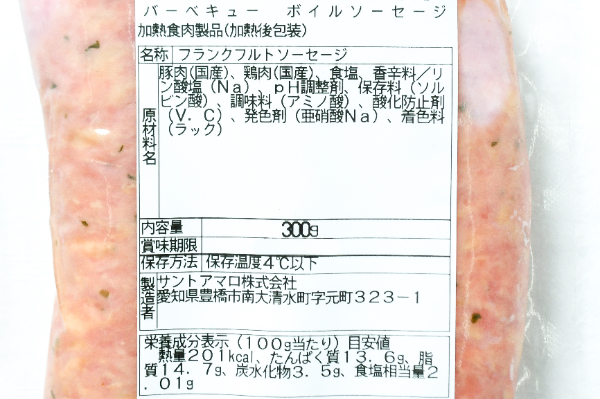 バーベキュー ボイルソーセージ
加熱食肉製品(加熱後包装)
名称 フランクフルトソーセージ
原材料名 豚肉(国産)、鶏肉(国産)、食塩、香辛料／リ
ン酸塩(Na)、pH調整剤、保存料(ソル
ビン酸)、調味料(アミノ酸)、酸化防止剤
(V.C)、発色剤(亜硝酸Na)、着色料
(ラック)
内容量 300g
賞味期限
保存方法 保存温度4℃以下
製造者 サントアマロ株式会社
愛知県豊橋市南大清水町字元町323-1
栄養成分表示(100g当たり)目安値
熱量201kcal、たんぱく質13.6g、脂
質14.7g、炭水化物3.5g、食塩相当量2
.01g